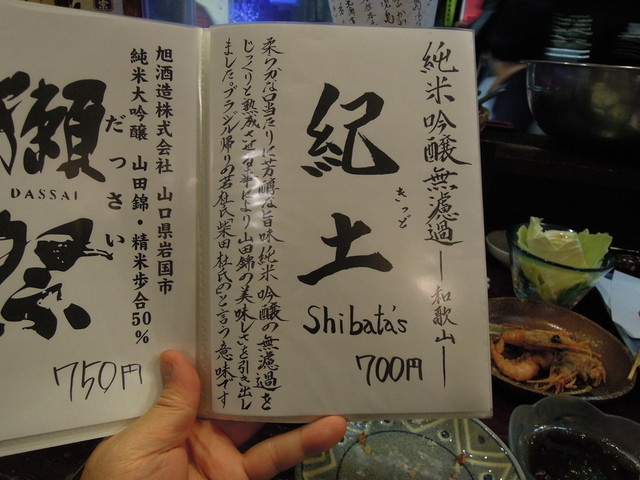 純米吟醸無濾過 ー和歌山ー
紀土
きっど
Shibata's
700円
柔らかな口当たりに芳醇な旨味純米吟醸の無濾過を
じっくりと熟成させる事により山田錦の美味しさを引き出し
ました。ブラジル帰りの若杜氏「柴田杜氏の」と言う意味です
旭酒造株式会社 山口県岩国市
純米大吟醸 山田錦・精米歩合50%
だっさい
獺祭
DASSAI
750円